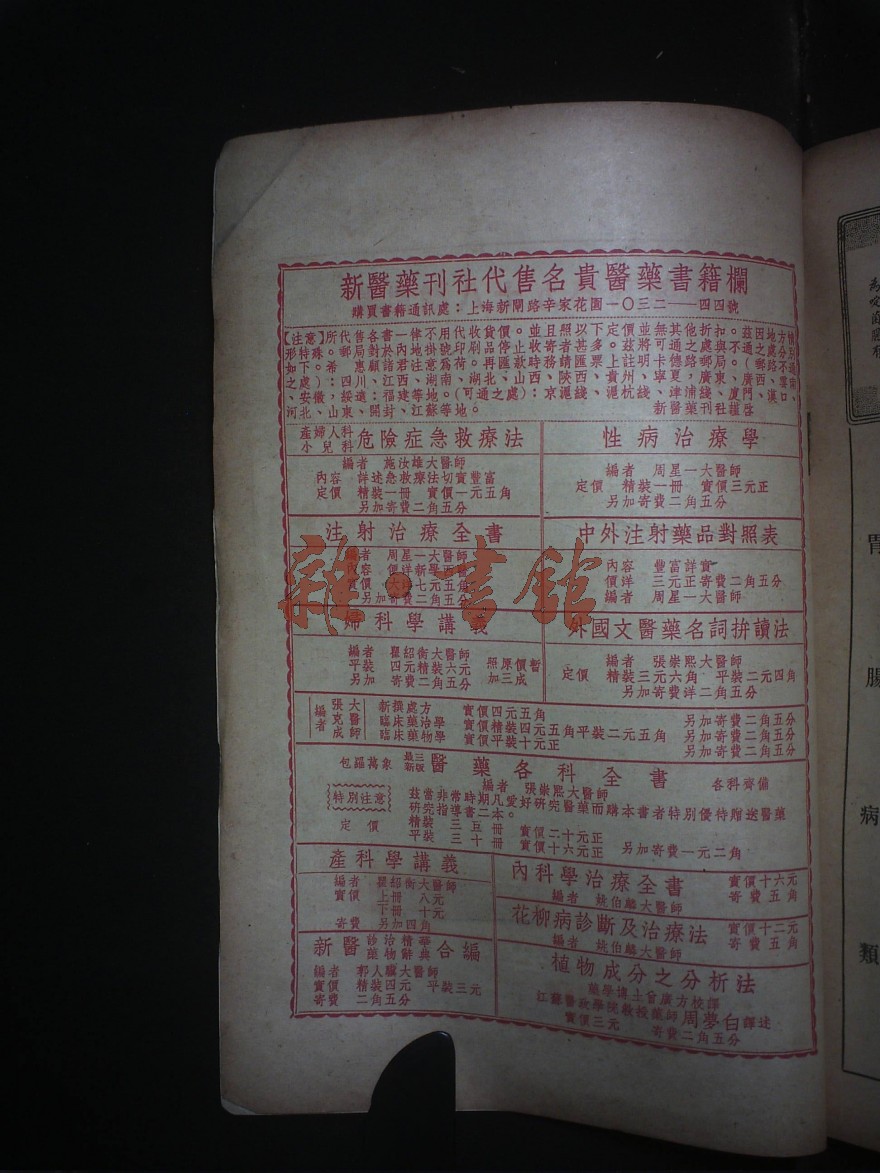 新醫藥刊社代售名貴醫藥書籍欄
購買書籍通訊處：上海新閘路辛家花園一〇三二——四四號
【注意】所代售各書一律不用代收貨價。並且照以下定價並無其他折扣。茲因地方情
形特殊。郵局對於內地掛號印刷品停止收寄者甚多。茲將可通之處與不通之處分別
如下。希 惠顧諸君注意為荷。再匯款時務請匯票上註明卡德路郵局。
之處）：四川、江西、湖南、湖北、山西、陝西、貴州、寧夏，廣東、廣西、
、安徽，綏遠：福建等地。（可通之處）：京滬綫、滬杭綫、津浦綫、廈門、漢口、
河北、山東、開封、江蘇等地。 新醫藥刊社謹啓
產婦人科
小兒科
危險症急救療法
編者 施汝雄大醫師
內容 詳述急救療法切實豐富
定價 精裝一冊 實價一元五角
另加寄費二角五分
性病治療學
編者 周星一大醫師
定價 精裝一冊 實價三元正
另加寄費二角五分
注射治療全書
編者 周星一大醫師
內容
實價 大洋七元五角
另加寄費二角五分
中外注射藥品對照表
內容 豐富詳實
價洋 三元正寄費二角五分
編者 周星一大醫師
婦科學講義
編者 瞿紹衡大醫師
平裝 四元精裝六元 照原價暫
另加 寄費二角五分 加三成
外國文醫藥名詞拼讀法
編者 張崇熙大醫師
定價 精裝三元六角 平裝二元四角
另加寄費洋二角五分
編者 張克成大醫師
新撰處方 實價四元五角 另加寄費二角五分
臨床藥治學 實價精裝四元五角平裝二元五角 另加寄費二角五分
臨床藥物學 實價平裝十元正 另加寄費二角五分
包羅萬象 最三新版 醫藥各科全書 各科齊備
編者 張崇熙大醫師
特別注意
茲當非常時期凡愛好研究醫藥而購本書者特別優待贈送醫藥
研究指導書二本。
定價 精裝 三巨冊 實價二十元正
平裝 三十冊 實價十六元正 另加寄費一元二角
產科學講義
編者 瞿紹衡大醫師
實價 上冊 八元
下冊 十元
寄費 另加四角
內科學治療全書 實價十六元
編者 姚伯麟大醫師 寄費五角
花柳病診斷及治療法 實價十二元
編者 姚伯麟大醫師 寄費五角
新醫 診治精華 藥物辭典 合編
編者 郭人驥大醫師
實價 精裝四元 平裝三元
寄費 二角五分
植物成分之分析法
藥學博士曾廣方校譯
江蘇醫政學院教授藥師周夢白譯述
實價三元 寄費二角五分
雜·書館
胃
腸
病
類